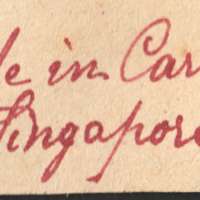 le in Car
Singapore